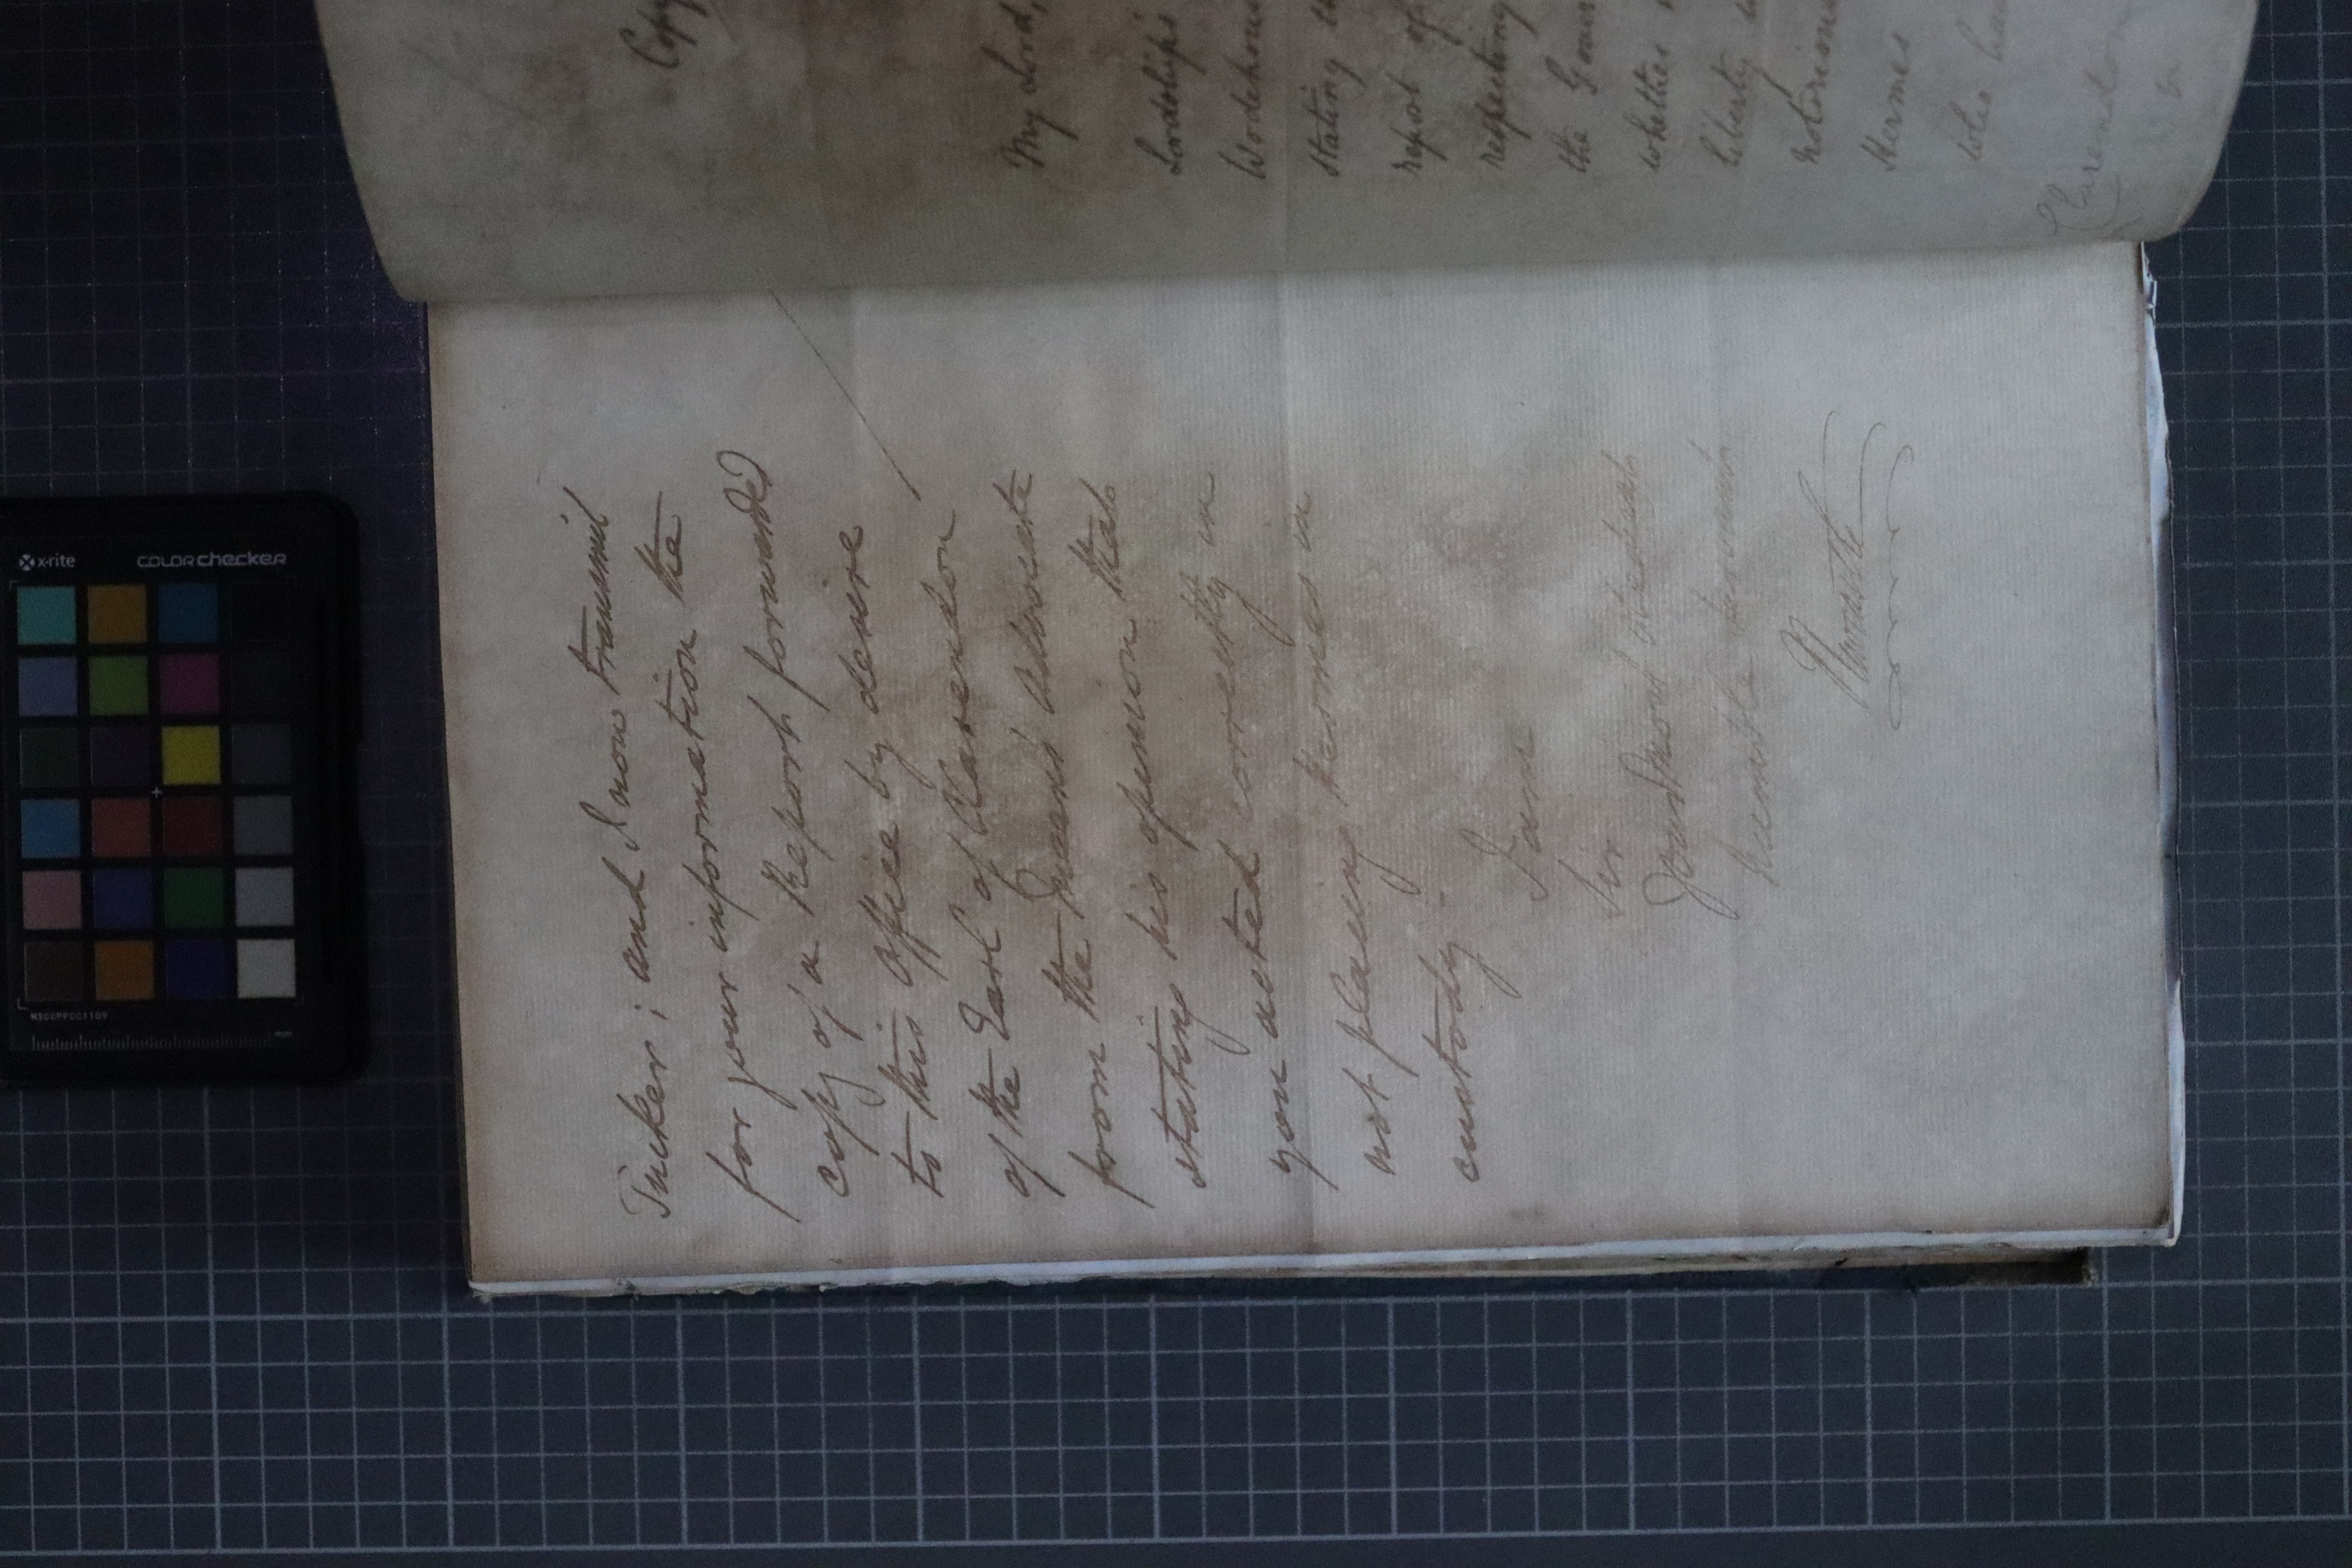 Tucker; and I now transmit
for your information the
copy of a Report forwarded
to this office by desire
of the Earl of Clarendon
from the Queens Advocate
stating his opinion that
you acted correctly in
not placing Hermes in
custody.
I am
Sir
Your Most Obedient
humble Servant
Newcastle
Copy
My Lord,
Lordships
Wodehouse
stating
report of
respecting
the
whether
liberty
notorious
Hermes
Clarendon
x-rite
colorchecker
MSCCPPCC1109
mm